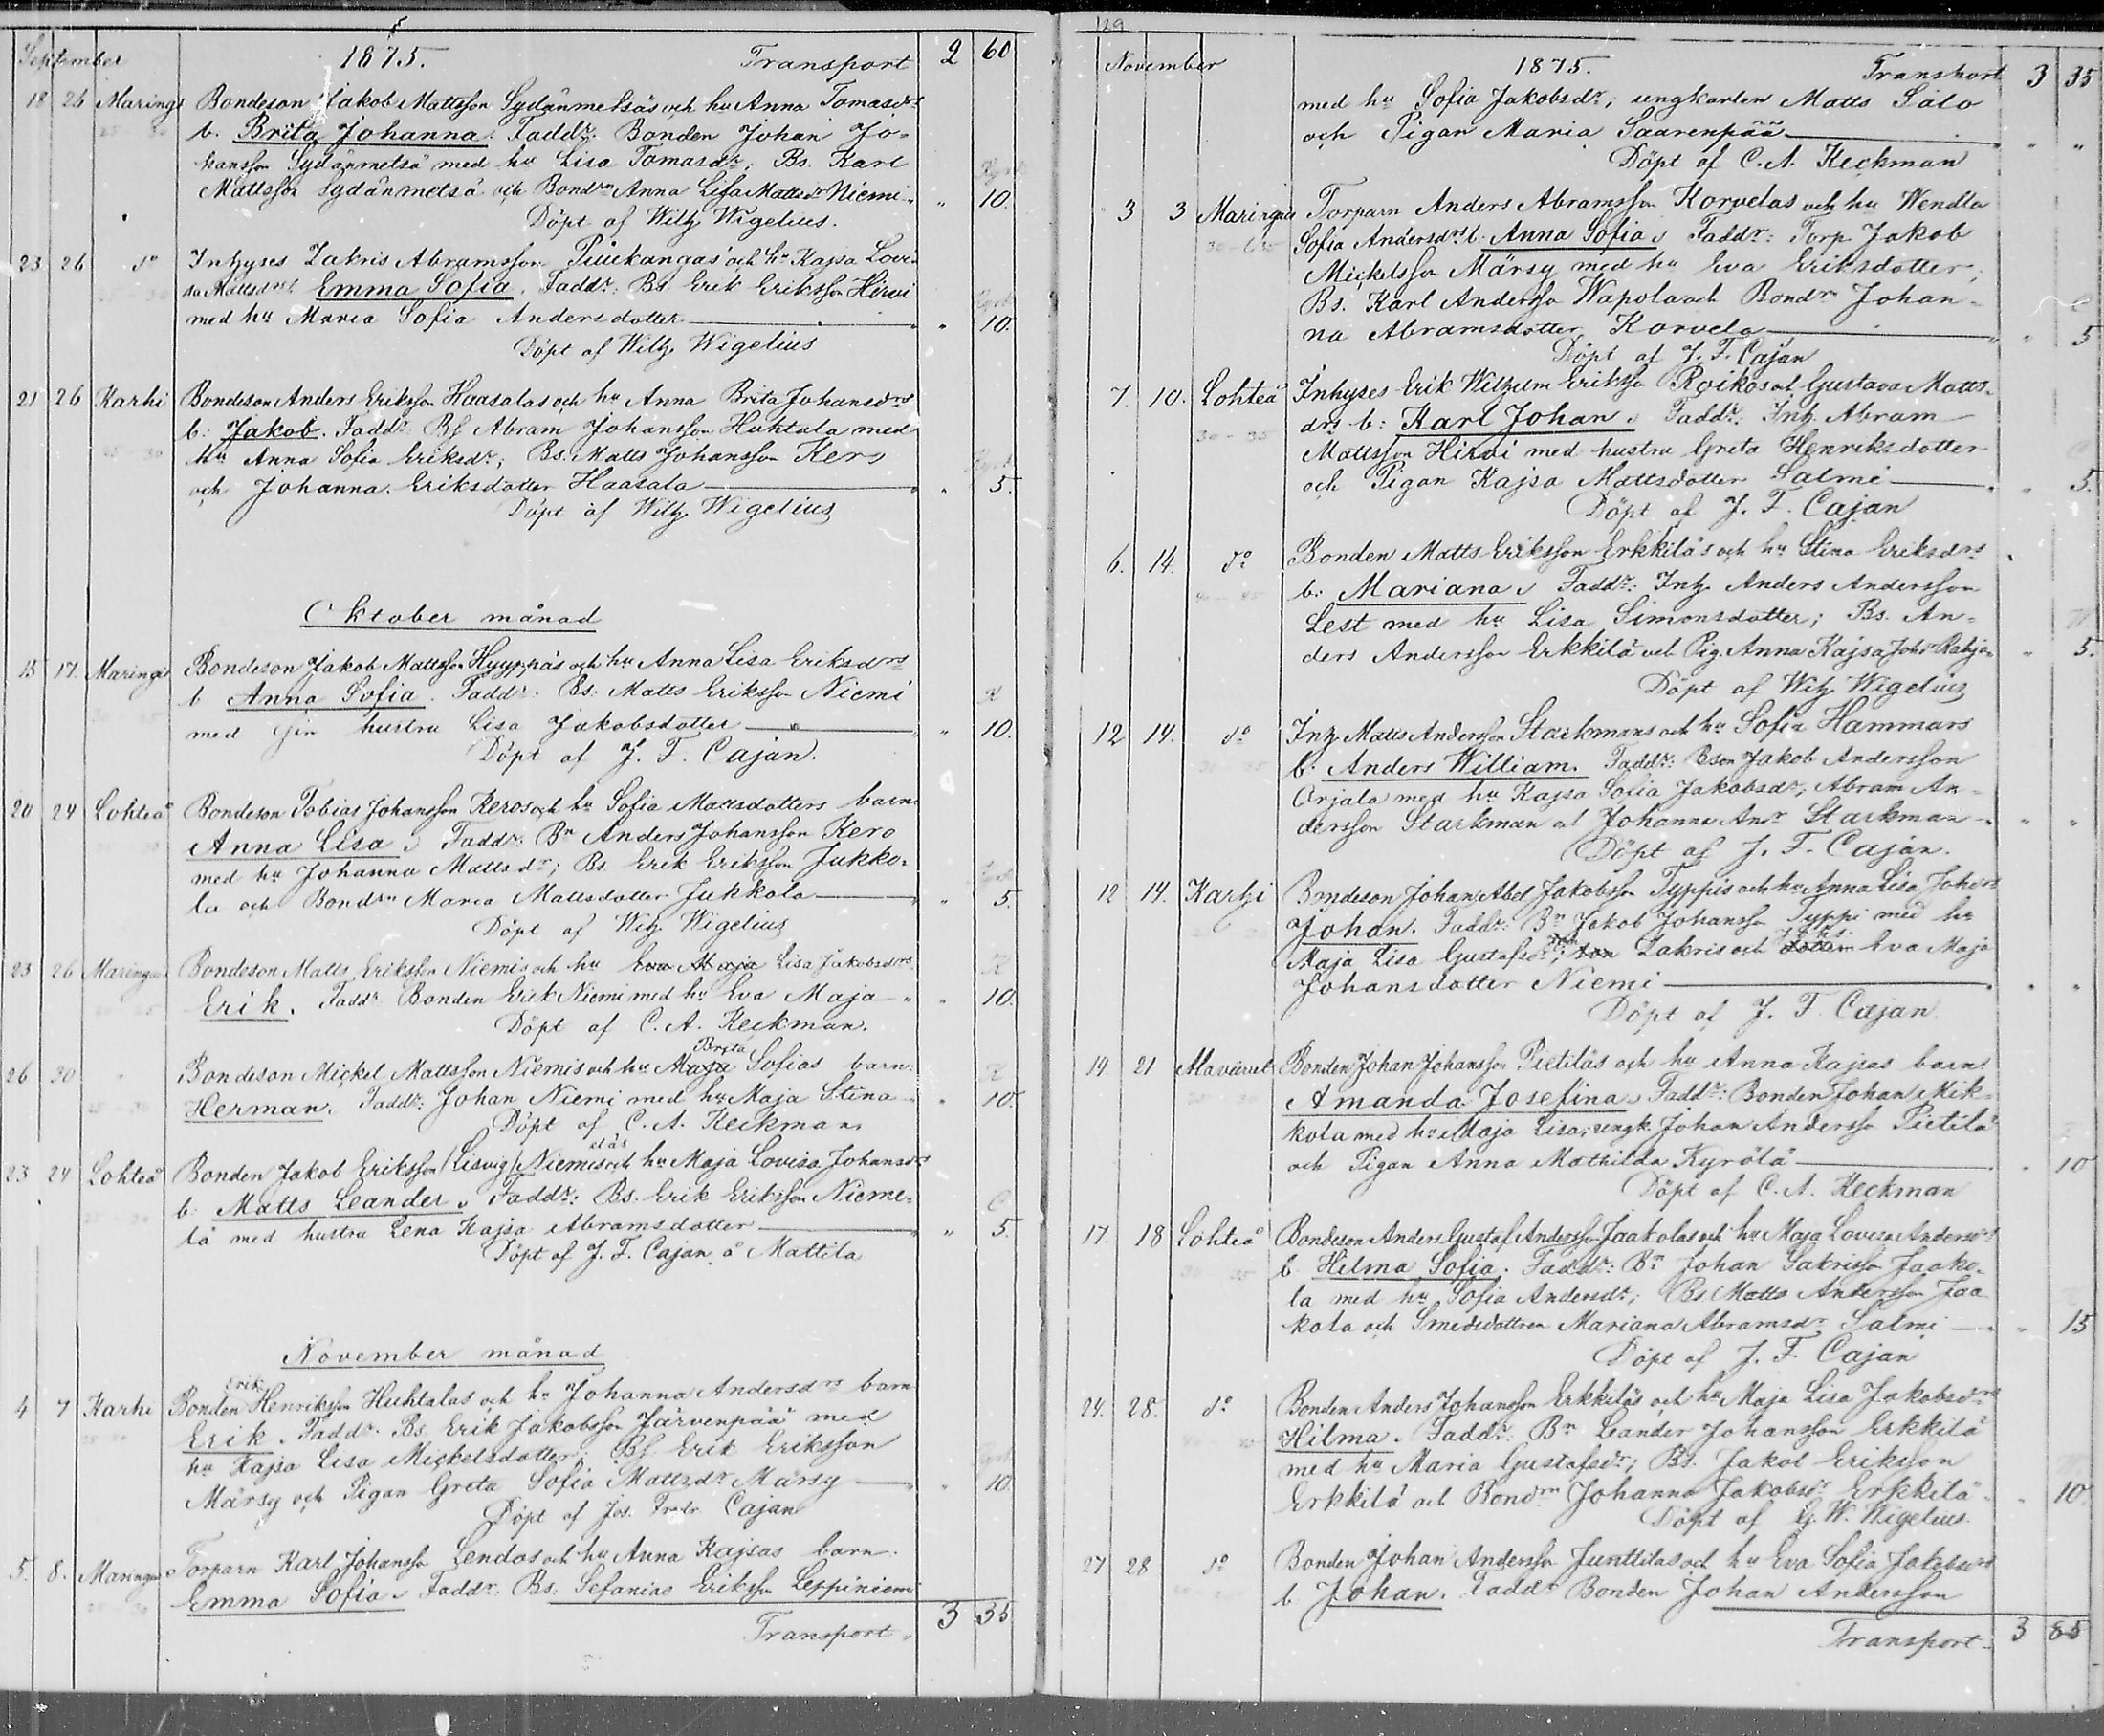 September 1875. Transport 2 60
18 26 Marings Bondeson Jakob Mattsson Sydänmetsäs och hu Anna Tomasdrs
b. Brita Johanna. Faddr. Bonden Johan Jo-
hansson Sydänmetsä med hu Lisa Tomasdr; Bs. Karl
Mattsson Sydänmetsä och Bondrn Anna Lisa Mattsdr Niemi „ 10.
Döpt af Wilh Wigelius.
23 26 do Inhyses Zakris Abramsson Piuckangas och hu Kajsa Lovi-
sa Mattsdrs Emma Sofia. Faddr: Bs. Erik Eriksson Hirvi
med hu Maria Sofia Andersdotter „ 10.
Döpt af Wilh Wigelius
21 26 Karhi Bondeson Anders Eriksson Haasalas och hu Anna Brita Johansdrs
b: Jakob. Faddr Bs Abram Johansson Huhtala med
hu Anna Sofia Eriksdr; Bs. Matts Johansson Kero
och Johanna Eriksdotter Haasala „ 5.
Döpt af Wilh Wigelius
Oktober månad
15 17. Maringa Bondeson Jakob Mattsson Hyyppäs och hu Anna Lisa Eriksdrs
b Anna Sofia. Faddr. Bs: Matts Eriksson Niemi
med sin hustru Lisa Jakobsdotter „ 10.
Döpt af J. F. Cajan.
20 24 Lohteå Bondeson Tobias Johansson Keros och hu Sofia Mattsdotters barn
Anna Lisa. Faddr: Bn Anders Johansson Kero
med hu Johanna Mattsdr; Bs Erik Eriksson Jukko-
la och Bondrn Maria Mattsdotter Jukkola „ 5.
Döpt af Wilh Wigelius
23 26 Maringa Bondeson Matts Eriksson Niemis och hu Eva Maja Lisa Jakobsdrs
Erik. Faddr Bonden Erik Niemi med hu Eva Maja „ 10.
Döpt af C. A. Keckman.
Brita
26 30 Bondeson Mickel Mattsson Niemis och hu Maja Sofias barn:
Herman. Faddr: Johan Niemi med hu Maja Stina „ 10.
Döpt af C. A. Keckman
eläs
23 24 Lohteå Bonden Jakob Eriksson (Lisvig) Niemis och hu Maja Lovisa Johansdrs
b. Matts Leander. Faddr: Bs. Erik Eriksson Nieme-
lä med hustru Lena Kajsa Abramsdotter „ 5.
Döpt af J. F. Cajan å Mattila
November månad
Erik
4 7 Karhi Bonden Henriksson Huhtalas och hu Johanna Andersdrs barn
Erik. Faddr. Bs. Erik Jakobsson Järvenpää med
hu Kajsa Lisa Mickelsdotter; Bs Erik Eriksson
Märsy och Pigan Greta Sofia Mattsdr Märsy „ 10
Döpt af Jos. Fredr. Cajan
5. 8. Maringa Torparn Karl Johansson Lendas och hu Anna Kajsas barn
Emma Sofia. Faddr. Bs. Sefanias Eriksson Leppiniemi
Transport 3 35
129
November 1875. Transport 3 35
med hu Sofia Jakobsdr; ungkarlen Matts Salo
och Pigan Maria Saarenpää „ „
Döpt af C. A. Keckman
3 3 Maringa Torparn Anders Abramsson Korvelas och hu Wendla
Sofia Andersdrs b. Anna Sofia. Faddr: Torp Jakob
Mickelsson Märsy med hu Eva Eriksdotter;
Bs. Karl Andersson Wapola och Bondrn Johan-
na Abramsdotter Korvela „ 5
Döpt af J. F. Cajan
7. 10. Lohteå Inhyses Erik Wilhelm Eriksson Roikos och Gustava Matts-
drs b: Karl Johan. Faddr: Inh. Abram
Mattsson Hirvi med hustru Greta Henriksdotter
och Pigan Kajsa Mattsdotter Salmi „ 5.
Döpt af J. F. Cajan
6. 14. do Bonden Matts Eriksson Erkkiläs och hu Stina Eriksdrs
b: Mariana. Faddr: Inh Anders Andersson
Lest med hu Lisa Simonsdotter; Bs. An-
ders Andersson Erkkilä och Pig. Anna Kajsa Johdr Rahja „ 5.
Döpt af Wilh Wigelius
12 14. do Inh Matts Andersson Starkmans och hu Sofia Hammars
b. Anders William. Faddr: Bson Jakob Andersson
Orjala med hu Kajsa Sofia Jakobsdr; Abram An-
dersson Starkman och Johanna Andr Starkman „ „
Döpt af J. F. Cajan.
12 14. Karhi Bondeson Johan Abel Jakobsson Typpis och hu Anna Lisa Johdrs
Johan. Faddr: Bn Jakob Johansson Typpi med hu
Maja Lisa Gustafsdr; son Zakris och dottern Eva Maja
Johansdotter Niemi „ „
Döpt af J. F. Cajan
19. 21 Alaviirret Bonden Johan Johansson Pietiläs och hu Anna Kajsas barn
Amanda Josefina. Faddr: Bonden Johan Mik-
kola med hu Maja Lisa; ungk Johan Andersson Pietilä
och Pigan Anna Mathilda Kyrölä „ 10
Döpt af C. A. Keckman
17. 18 Lohteå Bondeson Anders Gustaf Andersson Jaakolas och hu Maja Lovisa Andersdrs
b. Hilma Sofia. Faddr: Bn Johan Sakrisson Jaako-
la med hu Sofia Andersdr; Bs Matts Andersson Jaa
kola och Smedsdottren Mariana Abramsdr Salmi „ 15
Döpt af J. F. Cajan
24. 28. do Bonden Anders Johansson Erkkiläs och hu Maja Lisa Jakobsdrs
Hilma. Faddr: Bn Leander Johansson Erkkilä
med hu Maria Gustafsdr; Bs. Jakob Eriksson
Erkkilä och Bondrn Johanna Jakobsdr Erkkilä „ 10
Döpt af G. W. Wigelius.
27 28 do Bonden Johan Andersson Junttilas och hu Eva Sofia Jakobsdrs
b Johan. Faddr Bonden Johan Andersson
Transport 3 85